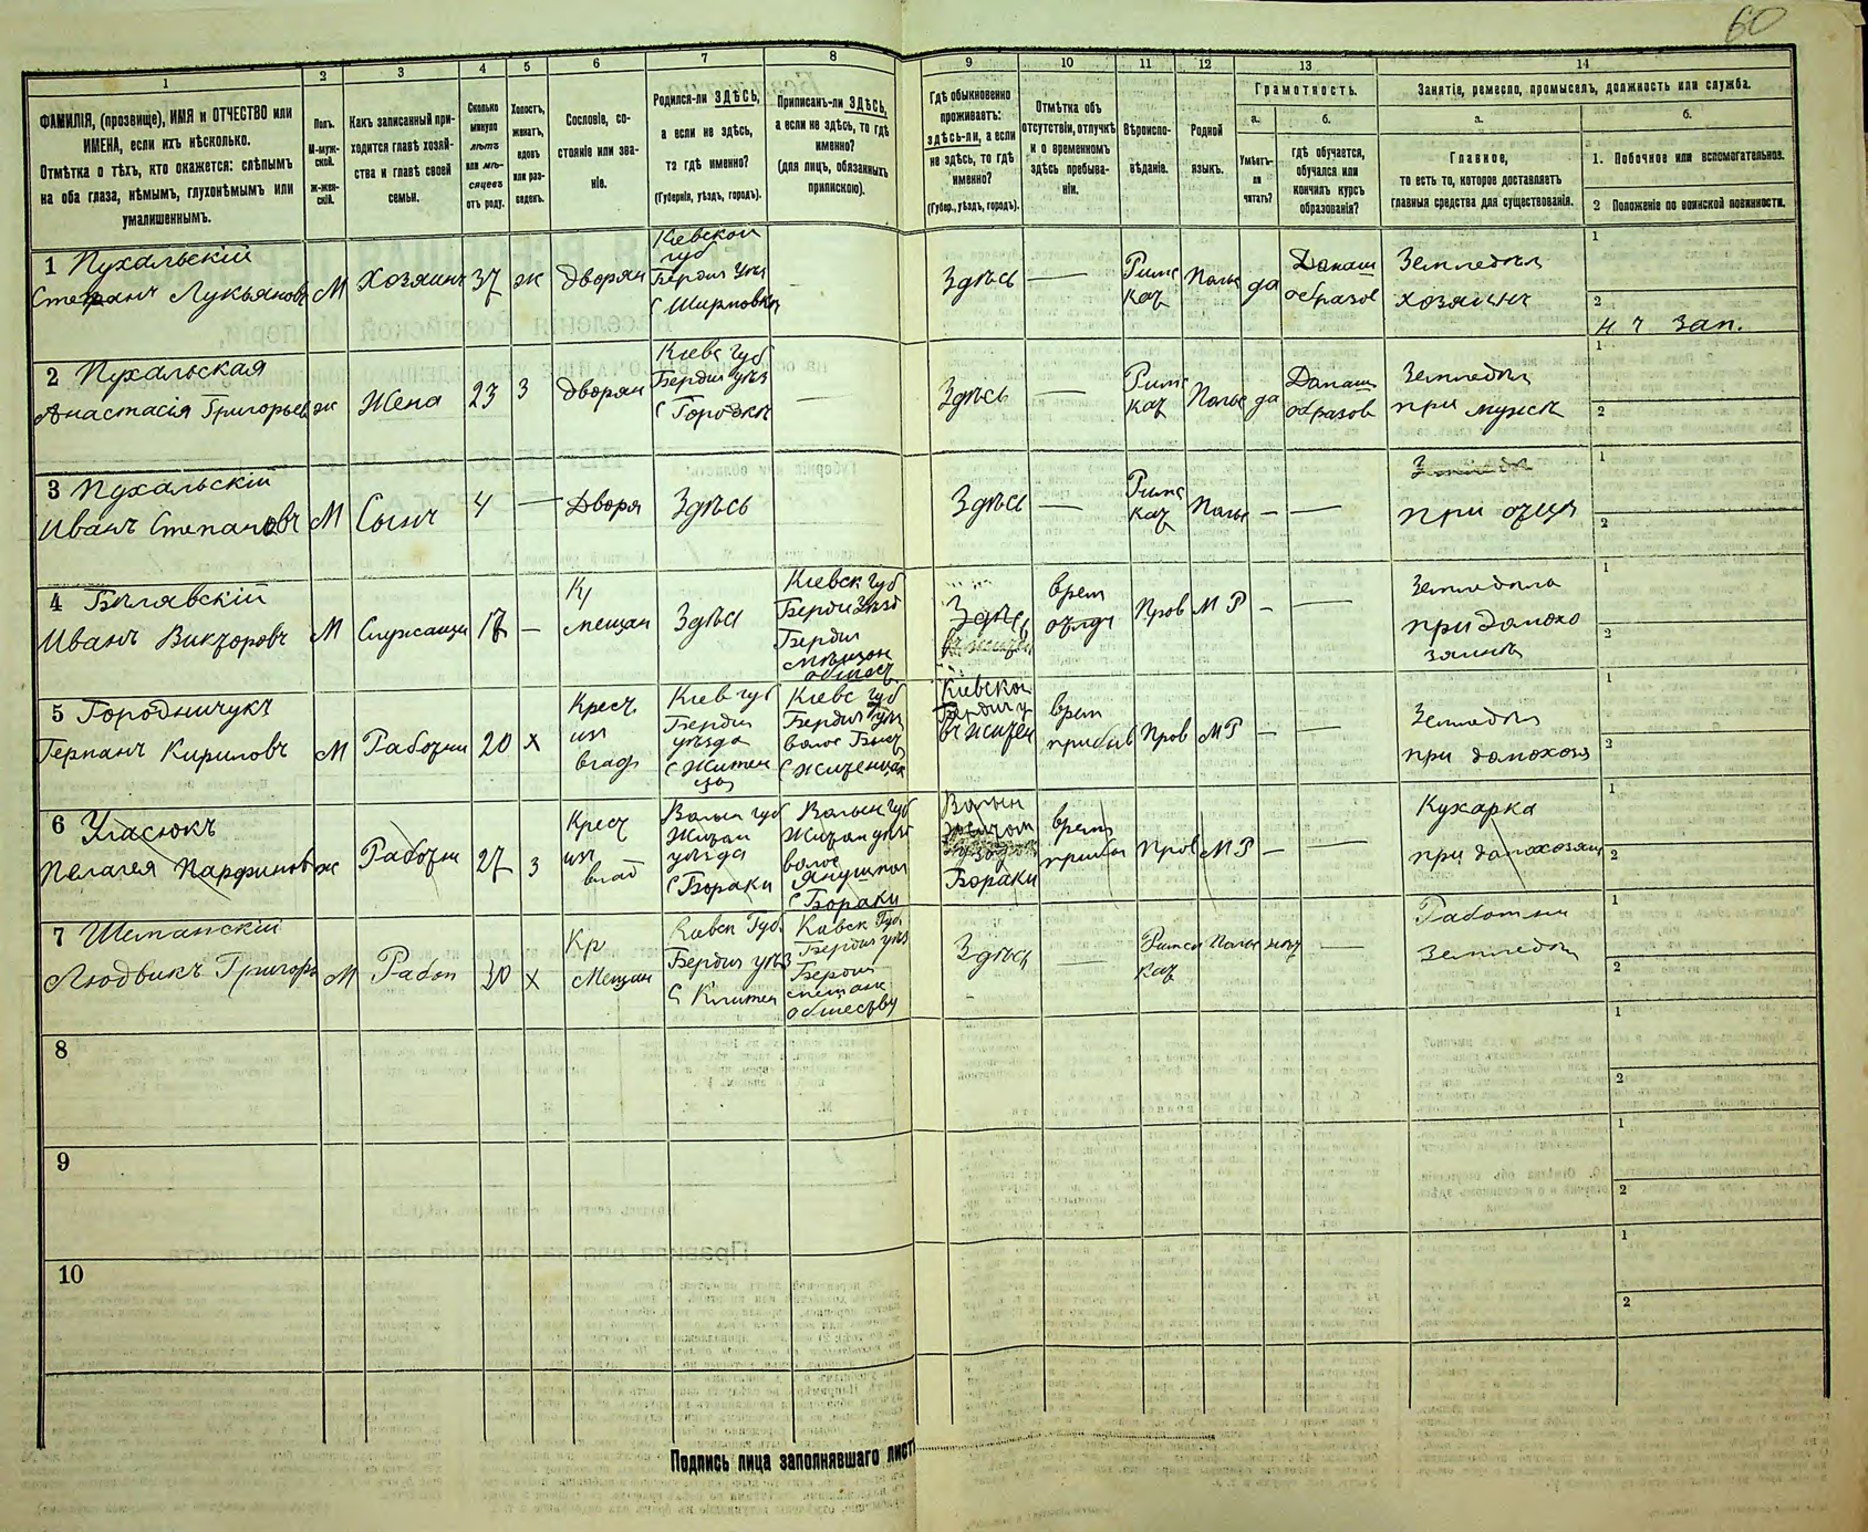 60
1 2 3 4 5 6 7 8 9 10 11 12 13 14
ФАМИЛІЯ, (прозвище), ИМЯ и ОТЧЕСТВО или
ИМЕНА, если ихъ нѣсколько.
Отмѣтка о тѣхъ, кто окажется: слѣпымъ
на оба глаза, нѣмымъ, глухонѣмымъ или
умалишеннымъ.
Полъ.
М-муж-
ской.
Ж-жен-
скій.
Какъ записанный при-
ходится главѣ хозяй-
ства и главѣ своей
семьи.
Сколько
минуло
лѣтъ
или мѣ-
сяцевъ
отъ роду.
Холостъ,
женатъ,
вдовъ
или раз-
веденъ.
Сословіе, со-
стояніе или зва-
ніе.
Родился-ли ЗДѢСЬ,
а если не здѣсь,
то гдѣ именно?
(Губернія, уѣздъ, городъ).
Приписанъ-ли ЗДѢСЬ,
а если не здѣсь, то гдѣ
именно?
(для лицъ, обязанныхъ
припискою).
Гдѣ обыкновенно
проживаетъ:
здѣсь-ли, а если
не здѣсь, то гдѣ
именно?
(Губер., уѣздъ, городъ).
Отмѣтка объ
отсутствіи, отлучкѣ
и о временномъ
здѣсь пребыва-
ніи.
Вѣроиспо-
вѣданіе.
Родной
языкъ.
Грамотность.
а.
Умѣетъ-
ли
читать?
б.
гдѣ обучается,
обучался или
кончилъ курсъ
образованія?
Занятіе, ремесло, промыселъ, должность или служба.
а.
Главное,
то есть то, которое доставляетъ
главныя средства для существованія.
б.
1. Побочное или вспомогательное.
2 Положеніе по воинской повинности.
1 Пухальскій
Степанъ Лукьяновъ
М
Хозяинъ
37
ж
Дворян
Кіевской
губ
Бердич уѣз
Здѣсь
—
Римс
кат
Польс
да
Домаш
образов
Земледѣл
хозяинъ
1
2
н ч зап.
2 Пухальская
Анастасія Григорьев
ж
Жена
23
З
Дворян
Кіевс губ
Бердич уѣз
с Городки
—
Здѣсь
—
Римс
кат
Польс
да
Домаш
образов
Земледѣл
при мужѣ
1
2
3 Пухальскій
Иванъ Степановъ
М
Сынъ
4
—
Дворя
Здѣсь
Здѣсь
—
Римс
кат
Польс
—
—
при отцѣ
1
2
4 Бѣлявскій
Иванъ Викторовъ
М
Служащи
—
мещан
Здѣсь
Кіевск губ
Берди уѣзд
Бердич
мѣщан
общес
Здѣсь
врем
Прав
М Р
—
—
при домохо
зяинѣ
1
2
5 Городничукъ
Германъ Кириловъ
М
Работни
20
х
Крест
из
влад
Кіев губ
Бердич
уѣзда
Кіевс губ
Бердич уѣз
волос
Кіевской
Бердич у
врем
прибыв
Прав
М Р
—
—
Земледѣл
при домохозя
1
2
6 Уласюкъ
Пелагея Парфинов
ж
Работн
27
З
Крест
из
влад
Волын губ
Житом
уѣзда
с Бораки
Волын губ
Житом уѣзд
волос
Янушпол
с Бораки
Волын
Бораки
врем
прибы
Прав
М Р
—
—
Кухарка
при домохозяи
1
2
7 Шеманскій
Людвикъ Григорь
М
Работ
30
х
Кр
Мещан
Киевск Губ
Бердич уѣз
Киевск Губ
Бердич уѣз
Бердич
мещанс
обществу
Здѣсь
—
Римск
кат
Польс
нѣт
—
Работни
Земледѣл
1
2
8
1
2
9
1
2
10
1
2
Подпись лица заполнявшаго листъ